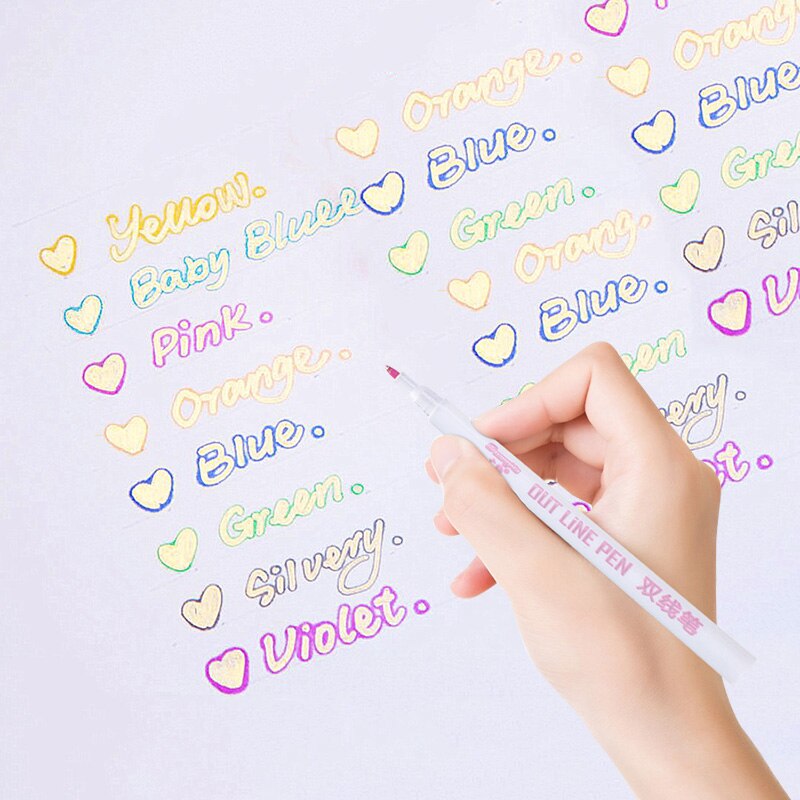 Yellow.
Baby Bluee
Pink.
Orange.
Blue.
Green.
Silvery.
Violet.
Orange.
Blue.
Green.
Orang.
Blue.
Green
very.
et.
Orang
Blue
Gre
Sil
V
OUT LiNE PEN 双线笔